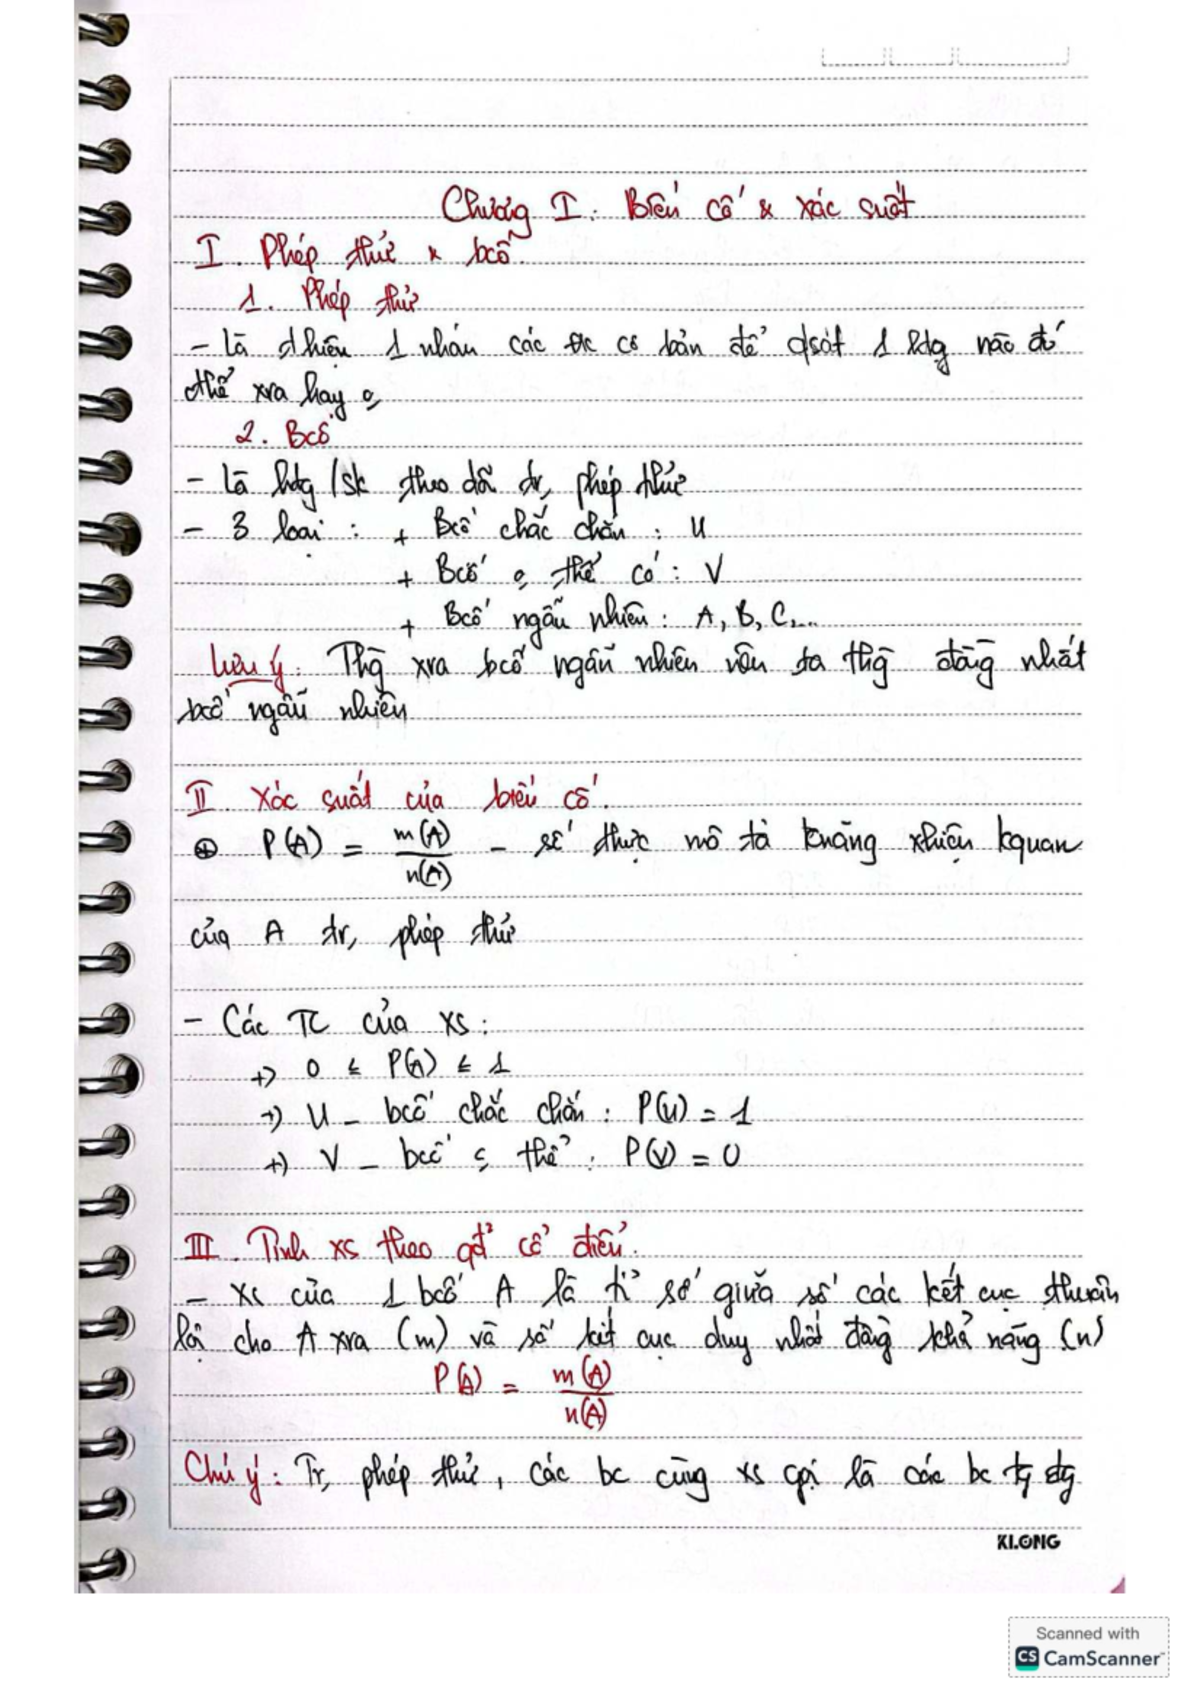 Chương I: Biến cố & xác suất
I. Phép thử & bcố
1. Phép thử
- Là thiện 1 nhán các đk cơ bản để qsát 1 htg nào đó
thể xra hay o,
2. Bcố
- Là htg /sk theo dõi tr, phép thử
- 3 loại : + Bcố chắc chắn : U
+ Bcố o, thể có : V
+ Bcố ngẫu nhiên : A, B, C,...
Lưu ý: Thg xra bcố ngẫu nhiên nên ta thg đồng nhất
bcố ngẫu nhiên
II. Xác suất của biến cố.
⊕ P(A) = m(A)/n(A) - số thực mô tả knăng xhiện kquan
của A tr, phép thử
- Các TC của xs :
+) 0 ≤ P(A) ≤ 1
+) U - bcố chắc chắn : P(U) = 1
+) V - bcố o, thể : P(V) = 0
III. Tính xs theo qđ cổ điển.
- Xs của 1 bcố A là tỉ số giữa số các kết cục thuận
lợi cho A xra (m) và số kết cục duy nhất đồng khả năng (n)
P(A) = m(A)/n(A)
Chú ý : Tr, phép thử, các bc cùng xs gọi là các bc tg đg
KLONG
Scanned with
CS CamScanner